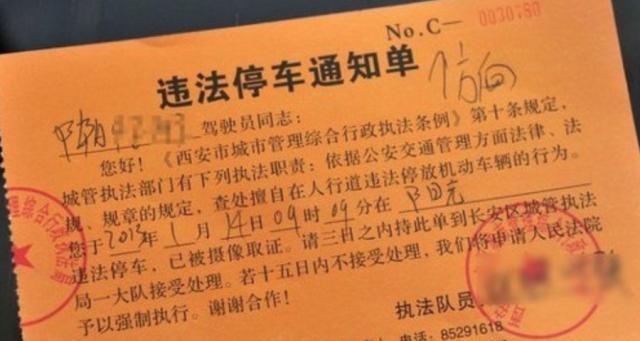 No.C— 0030780
违法停车通知单
驾驶员同志：
您好！《西安市城市管理综合行政执法条例》第十条规定，
城管执法部门有下列执法职责：依据公安交通管理方面法律、法
规、规章的规定，查处擅自在人行道违法停放机动车辆的行为。
您于2013年1月14日09时09分在
违法停车，已被摄像取证。请三日之内持此单到长安区城管执法
局一大队接受处理。若十五日内不接受处理，我们将申请人民法院
予以强制执行。谢谢合作！
执法队员
电话：85291618